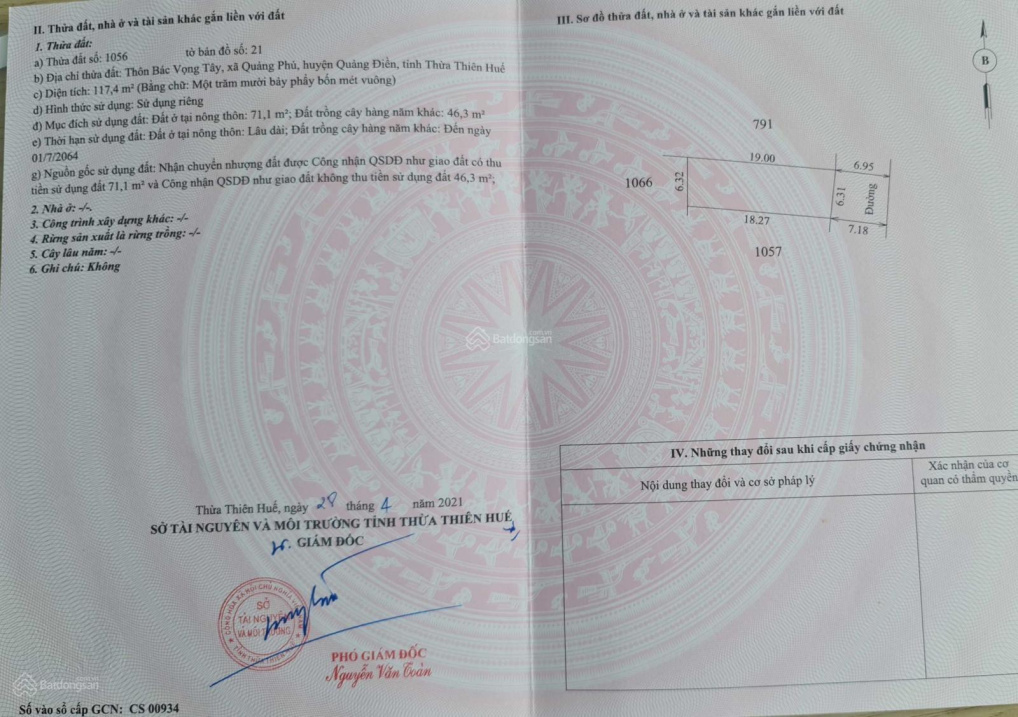 II. Thửa đất, nhà ở và tài sản khác gắn liền với đất
1. Thửa đất:
a) Thửa đất số: 1056 tờ bản đồ số: 21
b) Địa chỉ thửa đất: Thôn Bác Vọng Tây, xã Quảng Phú, huyện Quảng Điền, tỉnh Thừa Thiên Huế
c) Diện tích: 117,4 m² (Bằng chữ: Một trăm mười bảy phẩy bốn mét vuông)
d) Hình thức sử dụng: Sử dụng riêng
đ) Mục đích sử dụng đất: Đất ở tại nông thôn: 71,1 m²; Đất trồng cây hàng năm khác: 46,3 m²
e) Thời hạn sử dụng đất: Đất ở tại nông thôn: Lâu dài; Đất trồng cây hàng năm khác: Đến ngày
01/7/2064
g) Nguồn gốc sử dụng đất: Nhận chuyển nhượng đất được Công nhận QSDĐ như giao đất có thu
tiền sử dụng đất 71,1 m² và Công nhận QSDĐ như giao đất không thu tiền sử dụng đất 46,3 m²;
2. Nhà ở: -/-.
3. Công trình xây dựng khác: -/-
4. Rừng sản xuất là rừng trồng: -/-
5. Cây lâu năm: -/-
6. Ghi chú: Không
Thừa Thiên Huế, ngày 28 tháng 4 năm 2021
SỞ TÀI NGUYÊN VÀ MÔI TRƯỜNG TỈNH THỪA THIÊN HUẾ
GIÁM ĐỐC
SỞ
TÀI NGUYÊN
VÀ MÔI TRƯỜNG
PHÓ GIÁM ĐỐC
Nguyễn Văn Toàn
Số vào sổ cấp GCN: CS 00934
III. Sơ đồ thửa đất, nhà ở và tài sản khác gắn liền với đất
B
791
19.00
6.95
1066
6.32
6.31
Đường
18.27
7.18
1057
IV. Những thay đổi sau khi cấp giấy chứng nhận
Nội dung thay đổi và cơ sở pháp lý
Xác nhận của cơ
quan có thẩm quyền
Batdongsan
.com.vn
Batdongsan
.com.vn